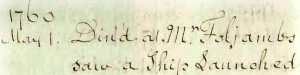 1760
May 1. Din'd at Mr Foljambs
saw a Ship Launched